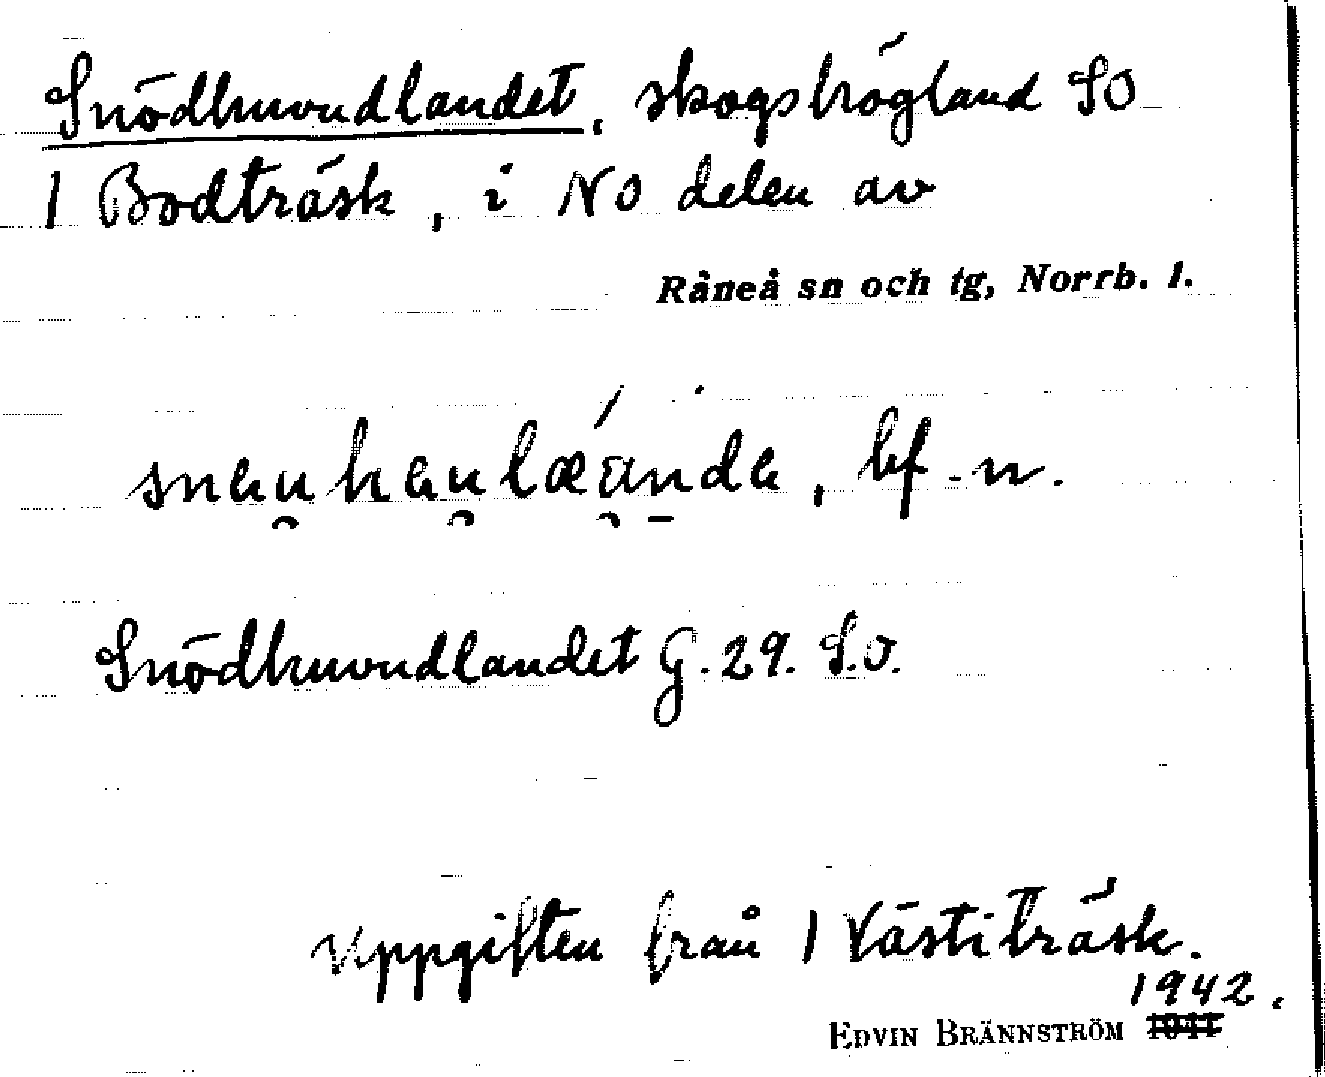 Snödhuvudlandet, skogshögland SO
1 Bodträsk, i NO delen av
Råneå sn och tg, Norrb. l.
bf. n.
Snödhuvudlandet G. 29. S.O.
Uppgiften från 1 Västiträsk.
1942.
EDVIN BRÄNNSTRÖM 1941